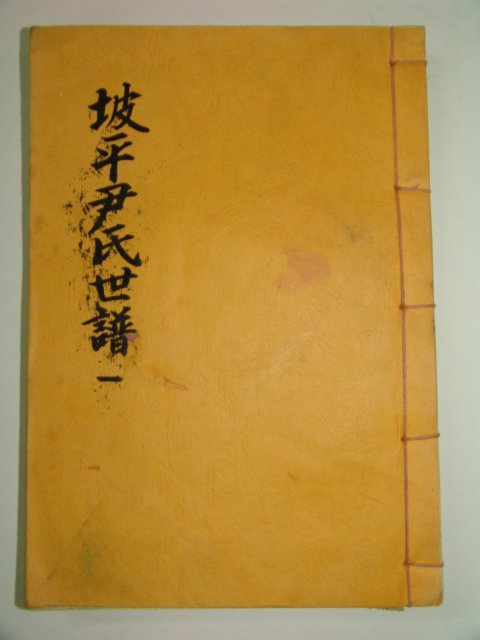 坡平尹氏世譜 一